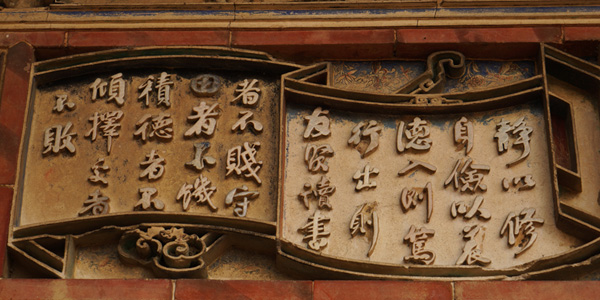 靜以修
身儉以養
德入則篤
行出則
友賢讀書
者不賤守
田者不饑
積德者不
傾擇交者
不敗